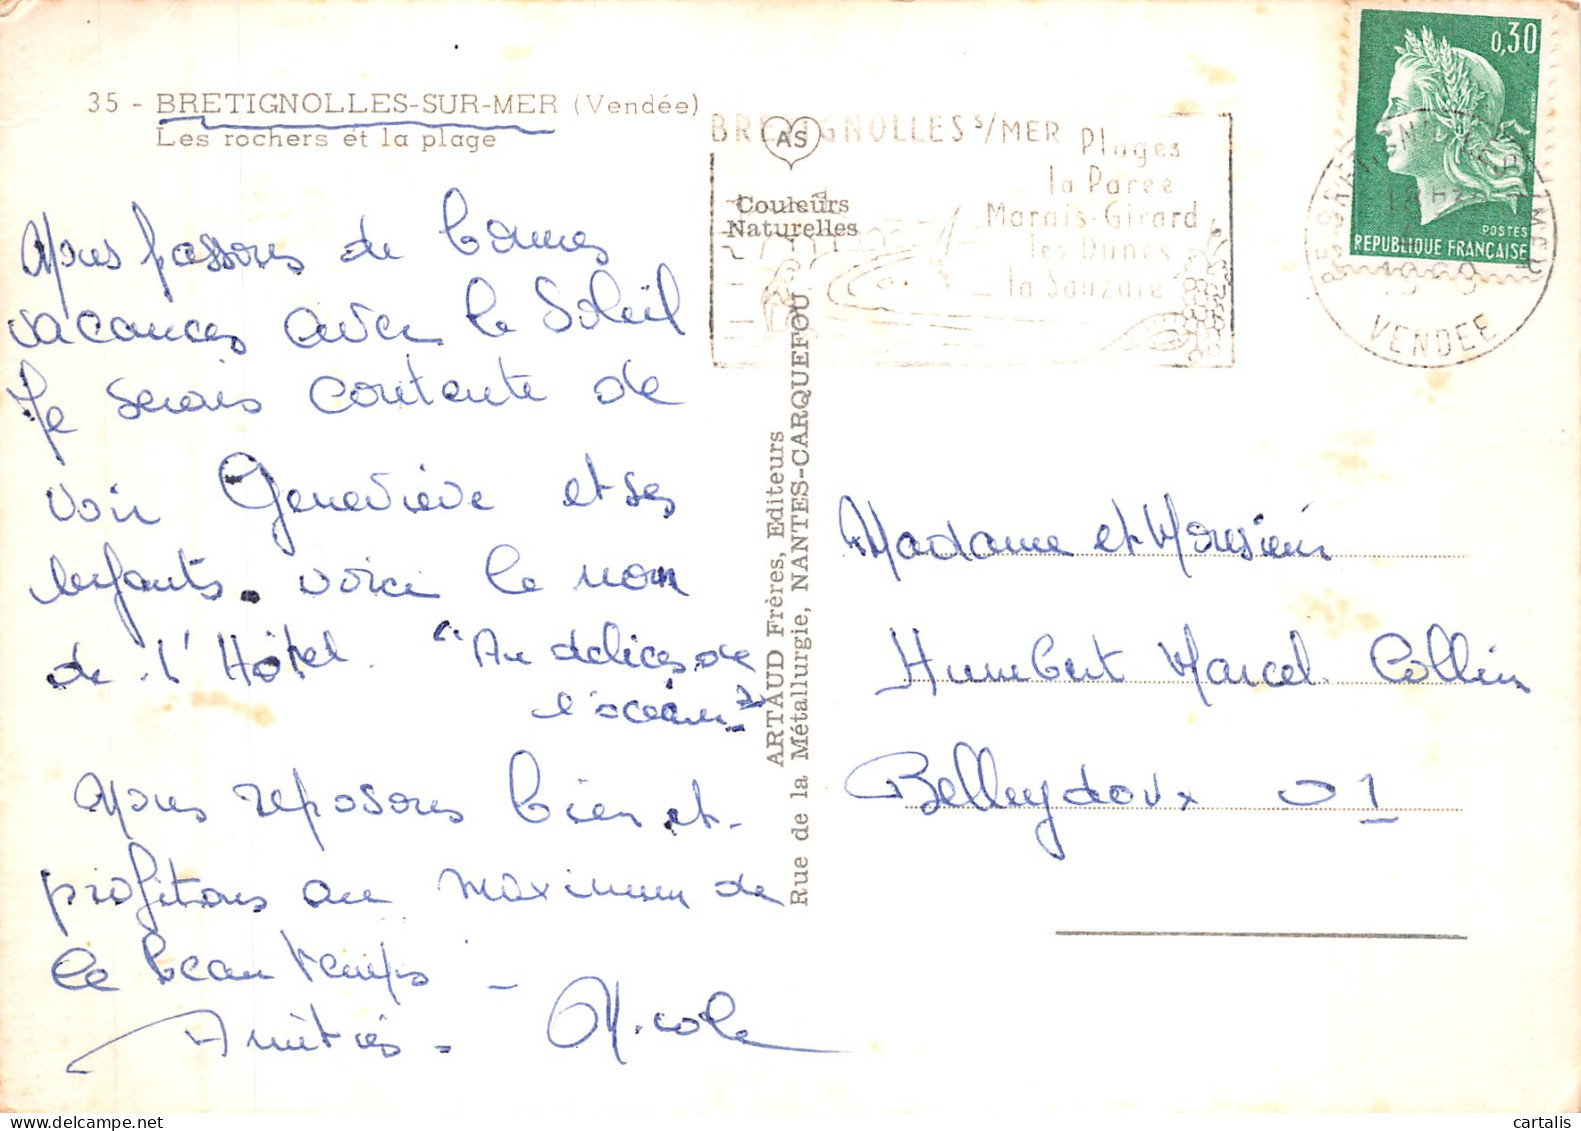 35 - BRETIGNOLLES-SUR-MER (Vendée)
Les rochers et la plage
nous passons de bonnes
vacances avec le Soleil
Je serais contente de
voir Geneviève et ses
enfants. voici le nom
de l'Hôtel "Au délices de
l'océan"
nous reposons bien et
profitons au maximum de
ce beau temps -
Amitiés - Nicole
AS
Couleurs
Naturelles
BRETIGNOLLES S/MER
Plages
la Parée
Marais-Girard
les Dunes
la Sauzaie
ARTAUD Frères, Editeurs
Rue de la Métallurgie, NANTES-CARQUEFOU
0,30
POSTES
REPUBLIQUE FRANÇAISE
VENDEE
Madame et Monsieur
Humbert Marcel Collin
Belleydoux 01
cartalis